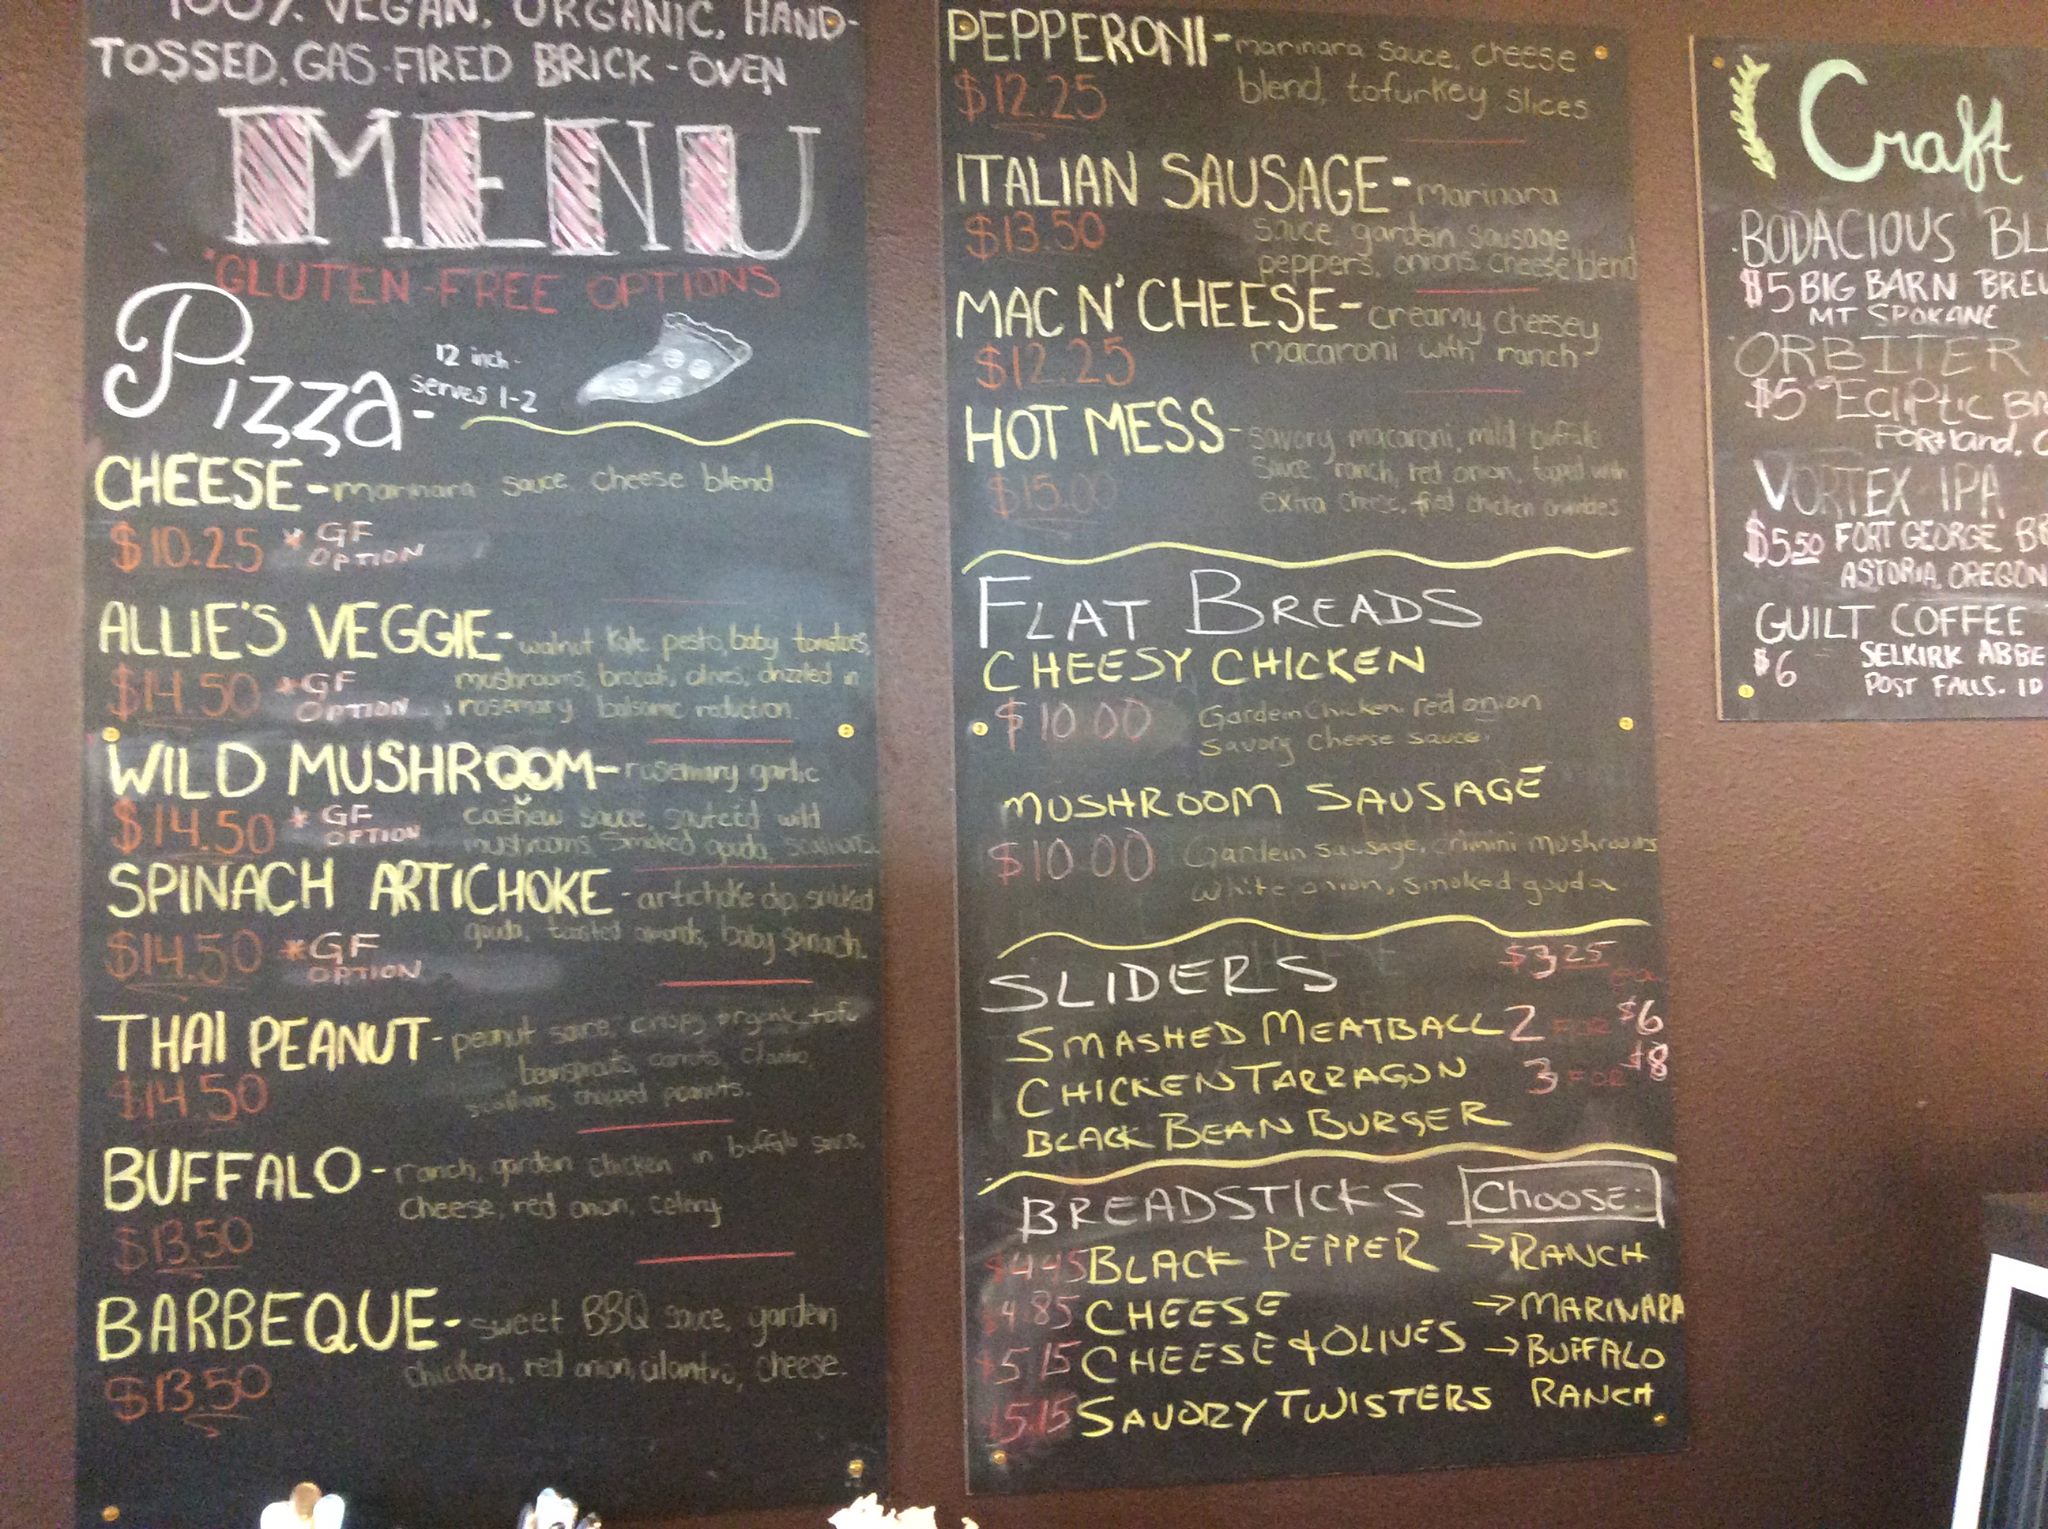 100% VEGAN, ORGANIC, HAND-
TOSSED, GAS-FIRED BRICK-OVEN
MENU
*GLUTEN-FREE OPTIONS
Pizza-
12 inch-
serves 1-2
CHEESE- marinara sauce, cheese blend
$10.25 * GF
OPTION
ALLIE'S VEGGIE- walnut kale pesto, baby tomatoes,
$14.50 *GF mushrooms, broccoli, olives, drizzled in
OPTION rosemary balsamic reduction.
WILD MUSHROOM- rosemary garlic
$14.50 * GF cashew sauce, sauteéd wild
OPTION mushrooms, smoked gouda, scallions.
SPINACH ARTICHOKE - artichoke dip, smoked
$14.50 *GF gouda, toasted almonds, baby spinach.
OPTION
THAI PEANUT- peanut sauce, crispy organic tofu
$14.50 beansprouts, carrots, cilantro,
scallions, chopped peanuts.
BUFFALO- ranch, garden chicken in buffalo sauce,
$13.50 cheese, red onion, celery
BARBEQUE- sweet BBQ sauce, garden
$13.50 chicken, red onion, cilantro, cheese.
PEPPERONI- marinara sauce, cheese
$12.25 blend, tofurkey slices
ITALIAN SAUSAGE- marinara
$13.50 sauce, gardein sausage
peppers, onions, cheese blend
MAC N' CHEESE- creamy cheesey
$12.25 macaroni with ranch
HOT MESS- savory macaroni, mild buffalo
$15.00 sauce, ranch, red onion, topped with
extra cheese, fried chicken crumbles
FLAT BREADS
CHEESY CHICKEN
$10.00 Gardein Chicken, red onion
savory cheese sauce.
MUSHROOM SAUSAGE
$10.00 Gardein sausage, crimini mushrooms
white onion, smoked gouda
SLIDERS $3.25 ea
SMASHED MEATBALL 2 FOR $6
CHICKEN TARRAGON 3 FOR $8
BLACK BEAN BURGER
BREADSTICKS CHOOSE:
$4.45 BLACK PEPPER → RANCH
$4.85 CHEESE → MARINARA
$5.15 CHEESE & OLIVES → BUFFALO
$5.15 SAVORY TWISTERS RANCH
Craft
BODACIOUS BL
$5 BIG BARN BREW
MT SPOKANE
ORBITER
$5 ECLIPTIC BR
PORTLAND, O
VORTEX IPA
$5.50 FORT GEORGE BR
ASTORIA, OREGON
GUILT COFFEE
$6 SELKIRK ABBE
POST FALLS. ID